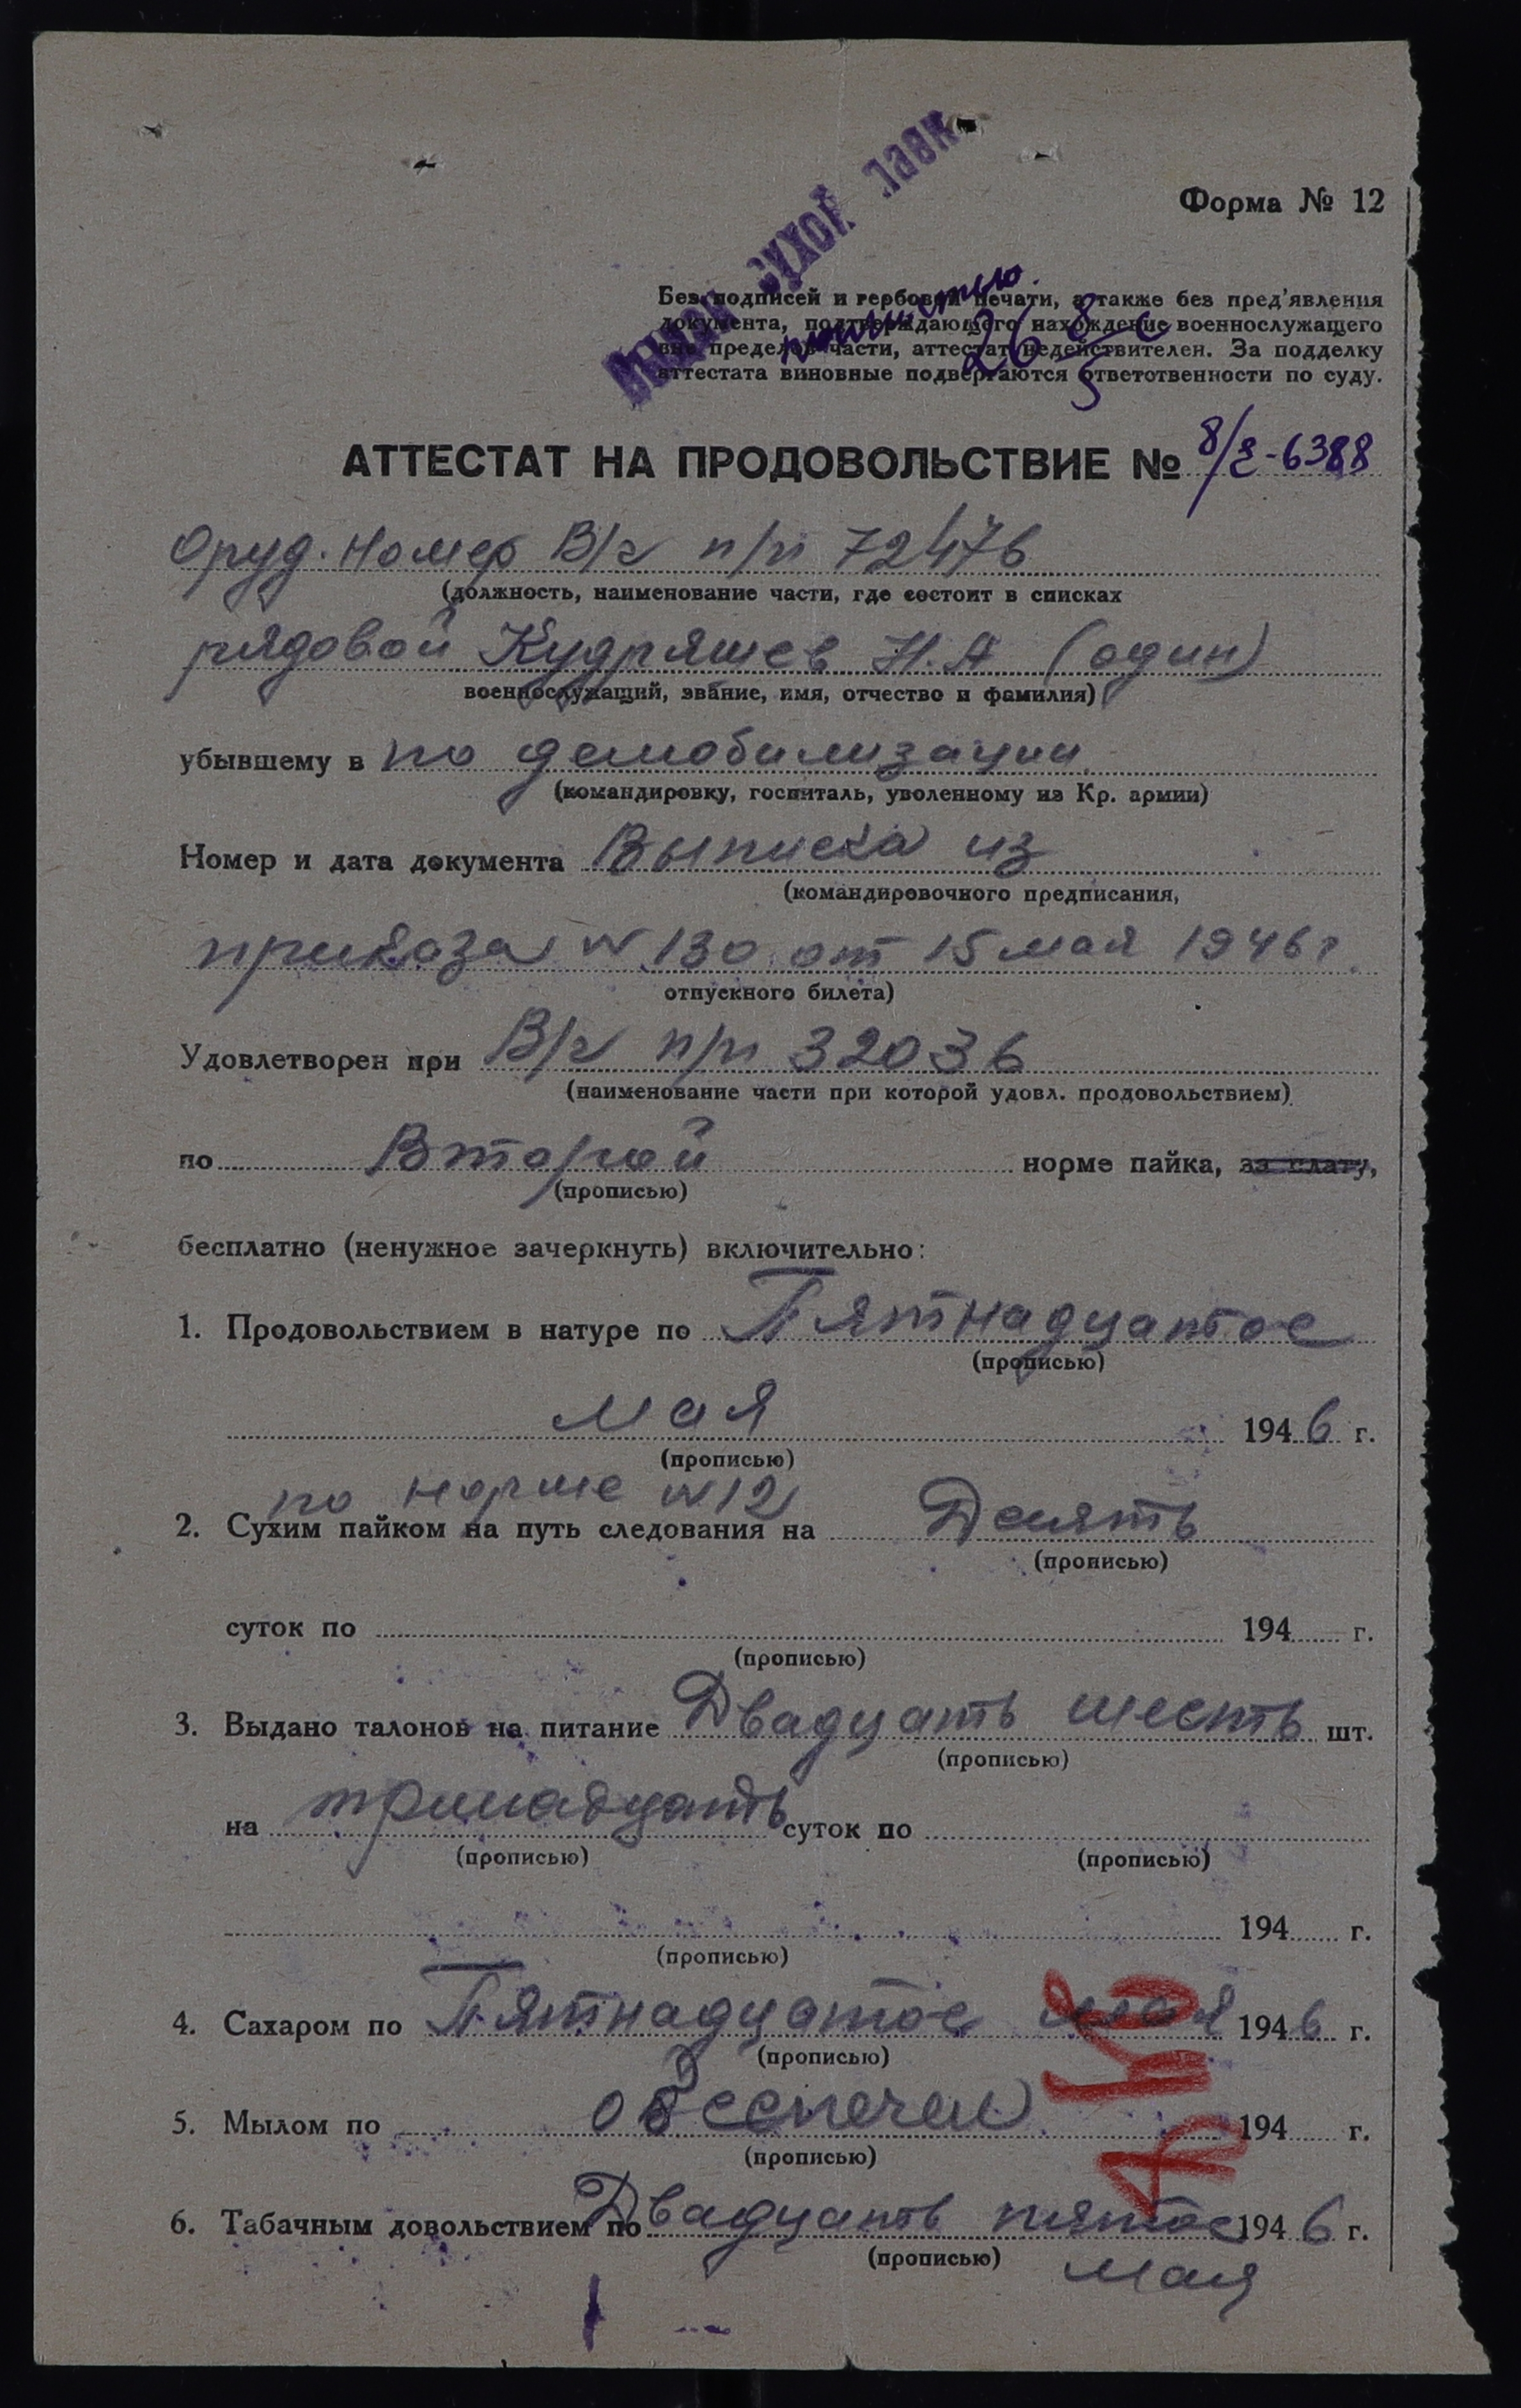 Форма № 12
сухой
полностью
26
Без подписей и гербовой печати, а также без пред'явления
документа, подтверждающего нахождение военнослужащего
вне пределов части, аттестат недействителен. За подделку
аттестата виновные подвергаются ответотвенности по суду.
АТТЕСТАТ НА ПРОДОВОЛЬСТВИЕ № -6388
Оруд. номер В/ч п/п 72476
(должность, наименование части, где состоит в списках
рядовой Кудряшев Н.А (один)
военнослужащий, звание, имя, отчество и фамилия)
убывшему в по демобилизации
(командировку, госпиталь, уволенному из Кр. армии)
Номер и дата документа Выписка из
(командировочного предписания,
приказа N 130 от 15 мая 1946 г.
отпускного билета)
Удовлетворен при В/ч п/п 32036
(наименование части при которой удовл. продовольствием)
по Второй норме пайка, за плату,
(прописью)
бесплатно (ненужное зачеркнуть) включительно:
1. Продовольствием в натуре по Пятнадцатое
(прописью)
мая 1946 г.
(прописью)
по норме N 12
2. Сухим пайком на путь следования на Десять
(прописью)
суток по 194 г.
(прописью)
3. Выдано талонов на питание Двадцать шесть шт.
(прописью)
на тринадцать суток по
(прописью) (прописью)
194 г.
(прописью)
4. Сахаром по Пятнадцатое мая 1946 г.
(прописью)
5. Мылом по обеспечен 194 г.
(прописью)
6. Табачным довольствием по Двадцать пятое 1946 г.
(прописью) мая